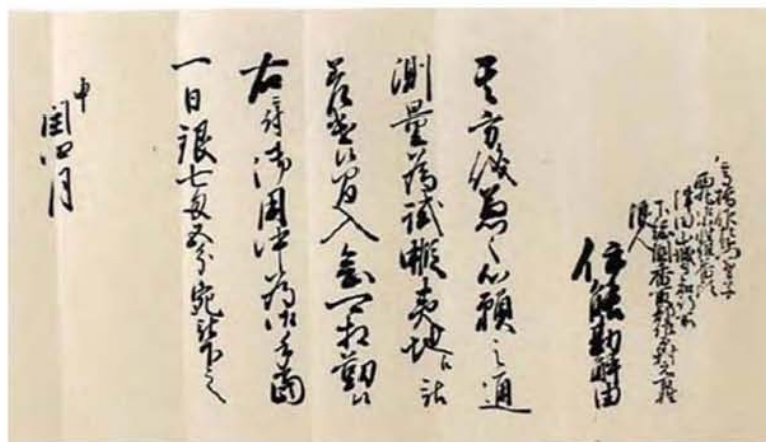 高橋作左衛門弟子
西丸小姓組番頭
津田山城守知行所
下総国香取郡佐原村元百姓
浪人
伊能勘解由
其方儀兼々心願之通
測量為試蝦夷地江被
差遣候間入念可相勤候
右ニ付御用中為御手當
一日銀七匁五分宛被下之
申
閏四月